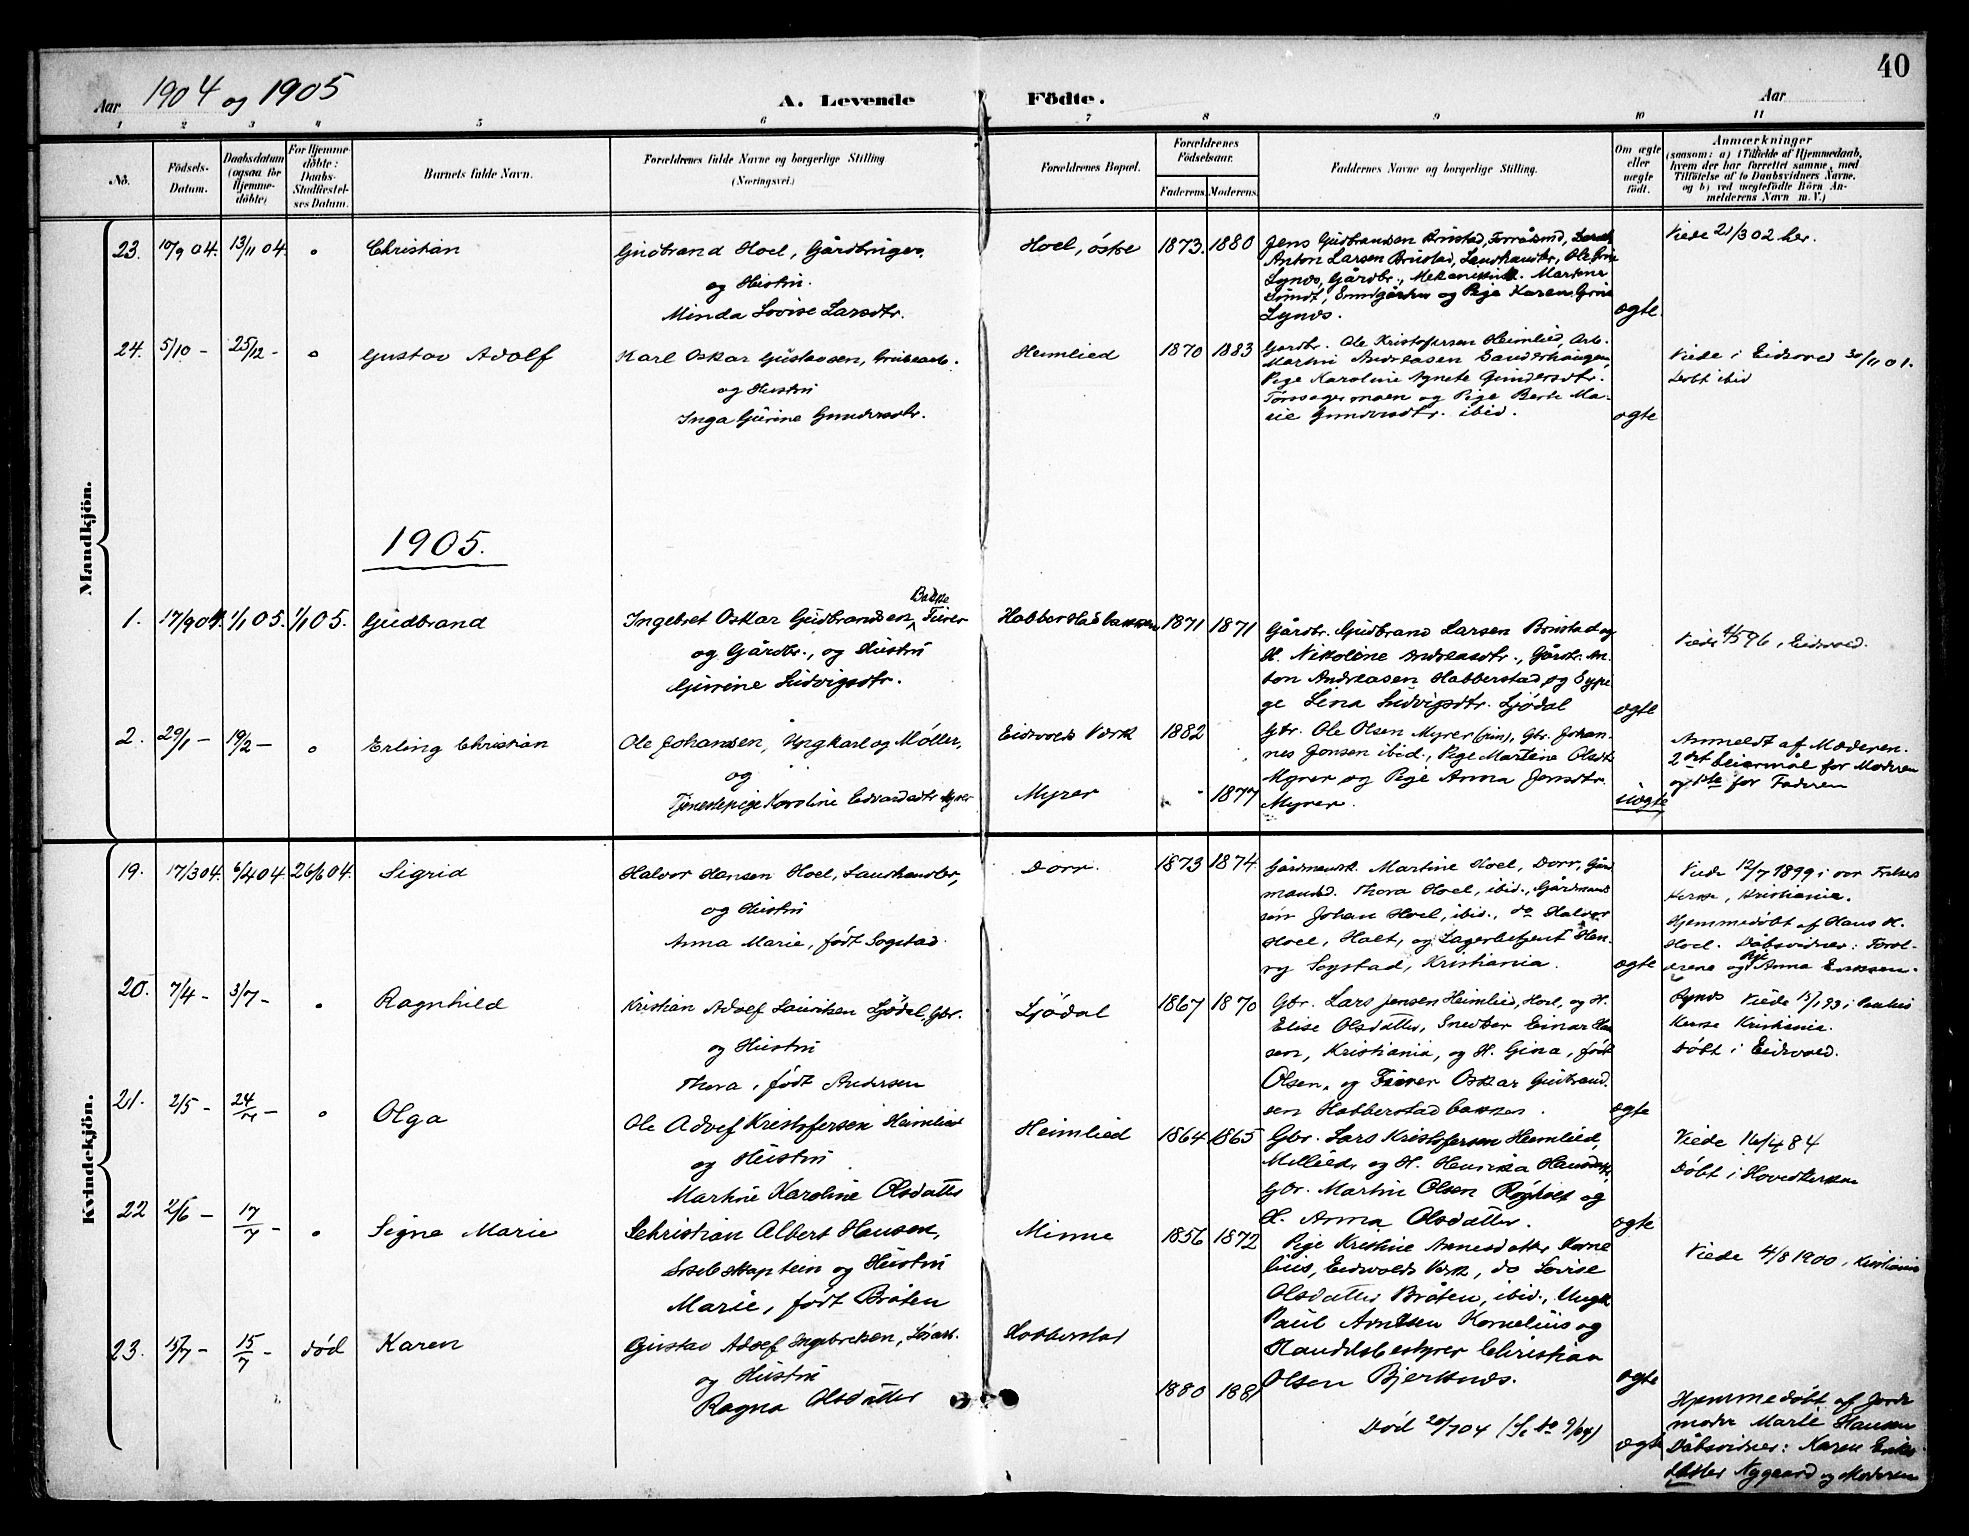 40
Aar 1904 og 1905
A. Levende Födte.
Aar
1 2 3 4 5 6 7 8 9 10 11
No.
Födsels-
Datum.
Daabsdatum
(ogsaa for
Hjemme-
döbte)
For Hjemme-
döbte:
Daabs-
Stadfæstel-
ses Datum.
Barnets fulde Navn.
Forældrenes fulde Navne og borgerlige Stilling
(Næringsvei.)
Forældrenes Bopæl.
Forældrenes
Födselsaar.
Faderens. Moderens.
Faddernes Navne og borgerlige Stilling.
Om ægte
eller
uægte
födt.
Anmærkninger
(saasom: a) i Tilfælde af Hjemmedaab,
hvem der har forrettet samme, med
Tilföielse af to Daabsvidners Navne,
og b) ved uægtefödte Börn An-
melderens Navn m. V.)
Mandkjön.
23. 10/9 04. 13/11 04. Christian
Gudbrand Hoel, Gårdbruger,
og Hustru
Minda Lovise Larsdtr.
Hoel, östre 1873. 1880
Jens Gudbrandsen Brustad,
Anton Larsen Brustad, Landhandler,
Lynds, Gårdbr.,
og Pige Karen
Lynds.
ægte.
Viede 21/3 02 her.
24. 5/10 - 25/12 - Gustav Adolf
Karl Oskar Gustavsen, Grubearb.
og Hustru
Inga Gurine Gundersdtr.
Heimlied 1870 1883
Gårdbr. Ole Kristofersen Heimlied, Arb.
Martin Andreasen Sanderhaugen,
Pige Karoline Agnete Gundersdtr.
og Pige Berte Ma-
rie Gundersdtr. ibid.
ægte
Viede i Eidsvold 30/11 01.
Döbt ibid
1905.
1. 17/9 04. 1/1 05. 1/1 05. Gudbrand
Ingebret Oskar Gudbrandsen Bakke, Fürer
og Gårdbr., og Hustru
Gurine Ludvigsdtr.
Habberstadbakken 1871 1871
Gårdbr. Gudbrand Larsen Brustad og
H. Nikoline Andreasdtr., Gårdbr. An-
ton Andreasen Habberstad og Sype
ge Lina Ludvigsdtr. Ljödal
ægte
Viede 4/5 96, Eidsvold.
2. 29/1 - 19/2 - Erling Christian
Ole Johansen, Ungkarl og Möller,
og
Tjenestepige Karoline Edvardsdtr Myrer
Eidsvolds Værk 1882
Myrer 1877
Gbr. Ole Olsen Myrer, Gbr. Johan-
nes Jensen ibid., Pige Martine Olsdtr
Myrer og Pige Anna Jensdtr.
Myrer.
uægte
Anmeldt af Moderen.
2det Leiermål for Moderen
og 1ste for Faderen
Kvindekjön.
19. 17/3 04. 6/4 04 26/6 04. Sigrid
Halvor Hansen Hoel, Landhandler,
og Hustru
Anna Marie, födt Sogstad.
Dorr. 1873 1874
Gårdmandsk. Martine Hoel, Dorr, Gård
mandsd. Thora Hoel, ibid., Gårdmands
sön Johan Hoel, ibid., do Halvor
Hoel, Holt, og Lagerbetjent Hen-
ry Sogstad, Kristiania.
ægte
Viede 12/7 1899 i vor Frelsers
Kirke, Kristiania.
Hjemmedöbt af Hans H.
Hoel. Dåbsvidner: Foræl-
drene og Pige Anna Eriksen
20. 7/4 - 3/7 - Ragnhild
Kristian Adolf Lauritsen Ljödal, Gbr.
og Hustru
Thora, födt Andersen
Ljödal 1867 1870
Gbr. Lars Jensen Heimlied, Hoel, og H.
Elise Olsdatter, Snedker Einar Han
sen, Kristiania, og H. Gina, födt
Olsen, og Fürer Oskar Gudbrand-
sen Habberstadbakken.
ægte
Lynds Viede 15/1 93 i Paulus
Kirke Kristiania.
Döbt i Eidsvold.
21. 2/5 - 24/7 - Olga
Ole Adolf Kristofersen Heimlied
og Hustru
Martine Karoline Olsdatter
Heimlied 1864 1865
Gbr. Lars Kristofersen Heimlied,
og H. Henrika Hansdtr,
Gbr. Martin Olsen Rögholt og
H. Anna Olsdatter.
ægte
Viede 16/4 84
Döbt i Hovedkirken
22 2/6 - 17/7 - Signe Marie
Christian Albert Hansen,
Skibskaptein og Hustru
Marie, födt Bråten
Minne 1856 1872
Pige Kristine Arnesdatter Korne
lius, Eidsvolds Værk, do Lovise
Olsdatter Bråten, ibid., Ungk
Paul Arnesen Kornelius og
Handelsbestyrer Christian
Olsen Bjerknes.
ægte
Viede 4/8 1900, Kristiania
23. 15/7 - 15/7 - död Karen
Gustav Adolf Ingebretsen, Lösarb.
og Hustru
Ragna Olsdatter
Habberstad
1880 1881
Död 20/7 04
ægte
Hjemmedöbt af Jorde
moder Marie Hansen
Dåbsvidner: Karen Eriks
datter Nygaard og Moderen